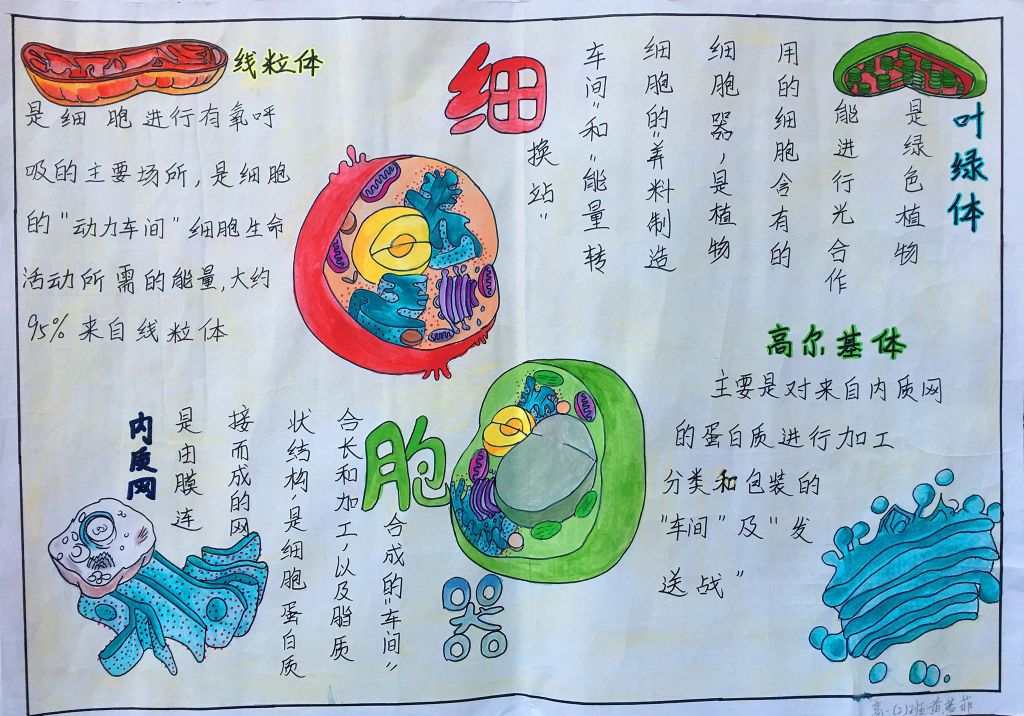 细
胞
器
线粒体
是细胞进行有氧呼
吸的主要场所,是细胞
的"动力车间"细胞生命
活动所需的能量,大约
95%来自线粒体
叶绿体
是绿色植物
能进行光合作
用的细胞含有的
细胞器,是植物
细胞的"养料制造
车间"和"能量转
换站"
内质网
是由膜连
接而成的网
状结构,是细胞蛋白质
合长和加工,以及脂质
合成的"车间"
高尔基体
主要是对来自内质网
的蛋白质进行加工
分类和包装的
"车间"及"发
送战"
高一(2)班黄若菲